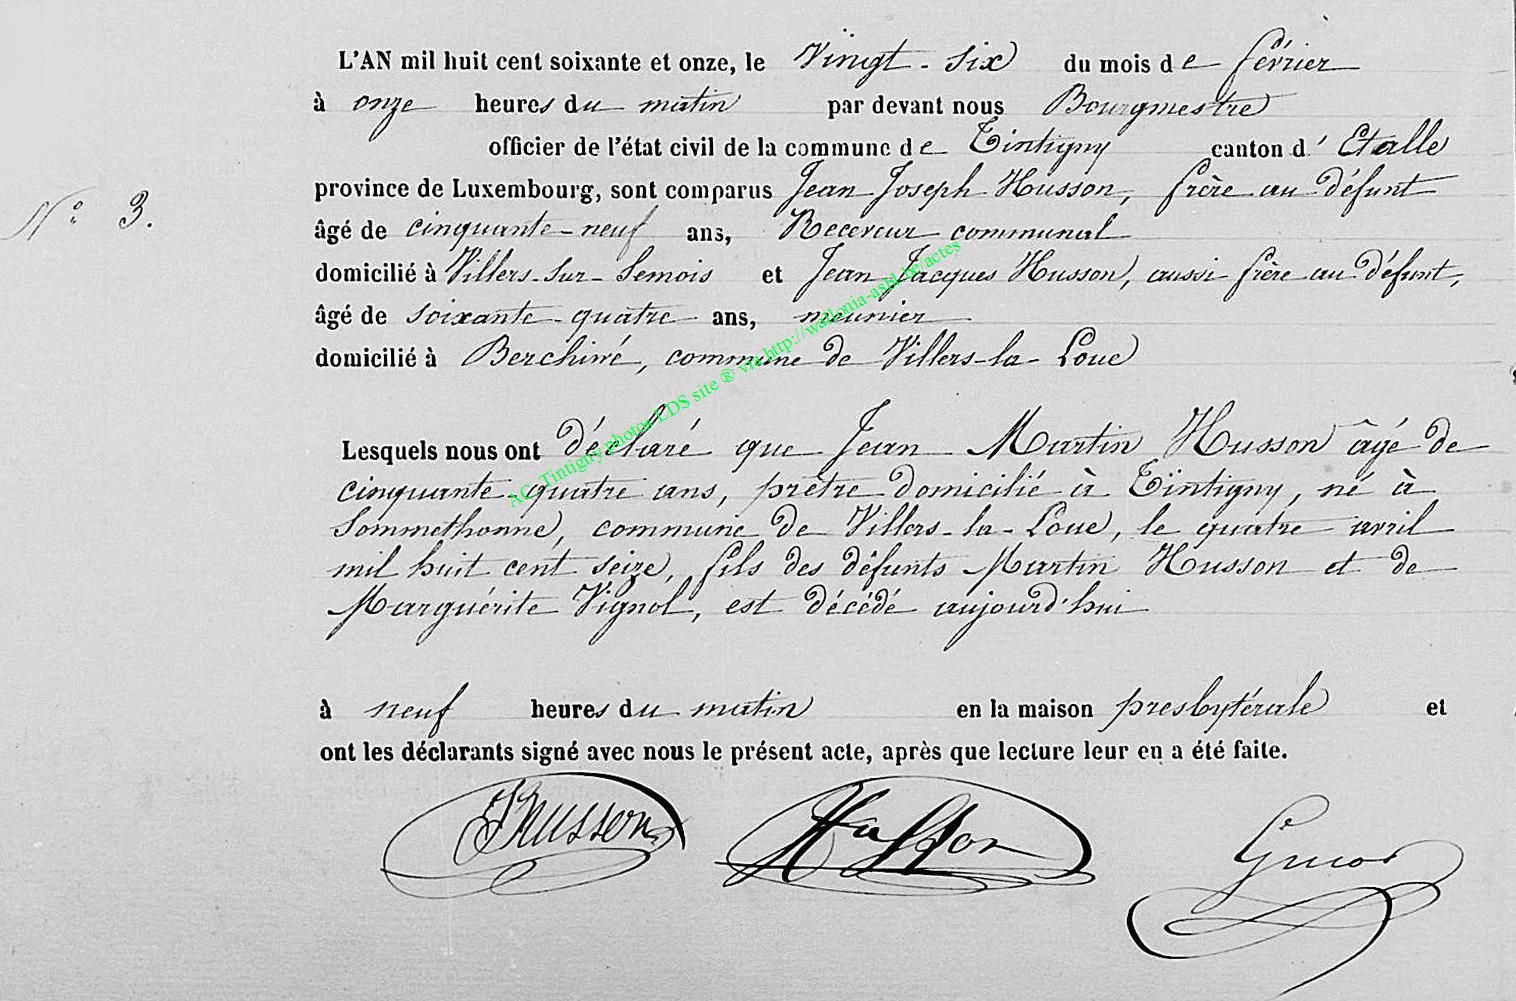 L'AN mil huit cent soixante et onze, le Vingt-six du mois de février
à onze heures du matin par devant nous Bourgmestre
officier de l'état civil de la commune de Tintigny canton d'Etalle
province de Luxembourg, sont comparus Jean Joseph Husson, frère au défunt
N° 3.
âgé de cinquante-neuf ans, Receveur communal
domicilié à Villers-sur-Semois et Jean Jacques Husson, aussi frère au défunt,
âgé de soixante-quatre ans, meunier
domicilié à Berchiwé, commune de Villers-la-Loue
Lesquels nous ont déclaré que Jean Martin Husson âgé de
cinquante-quatre ans, prêtre domicilié à Tintigny, né à
Sommethonne, commune de Villers-la-Loue, le quatre avril
mil huit cent seize, fils des défunts Martin Husson et de
Marguérite Vignol, est décédé aujourd'hui
à neuf heures du matin en la maison presbytérale et
ont les déclarants signé avec nous le présent acte, après que lecture leur en a été faite.
JHusson Husson
AC Tintigny photos LDS site ® via http://wallonia-asbl.be/actes